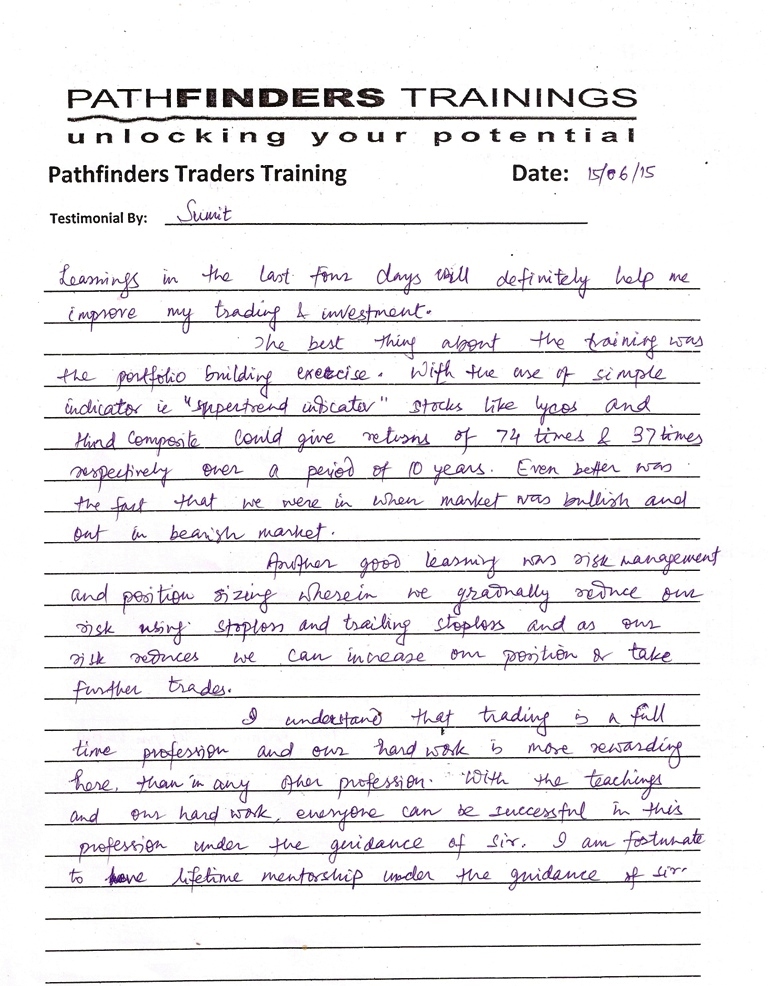 PATHFINDERS TRAININGS
unlocking your potential
Pathfinders Traders Training Date: 15/06/15
Testimonial By: Sumit
Learnings in the last four days will definitely help me
improve my trading & investment.
The best thing about the training was
the portfolio building exercise. With the use of simple
indicator ie "supertrend indicator" stocks like lycos and
Hind Composite could give returns of 74 times & 37 times
respectively over a period of 10 years. Even better was
the fact that we were in when market was bullish and
out in bearish market.
Another good learning was risk management
and position sizing wherein we gradually reduce our
risk using stoploss and trailing stoploss and as our
risk reduces we can increase our position or take
further trades.
I understand that trading is a full
time profession and our hard work is more rewarding
here, than in any other profession. With the teachings
and our hard work, everyone can be successful in this
profession under the guidance of sir. I am fortunate
to have lifetime mentorship under the guidance of sir.